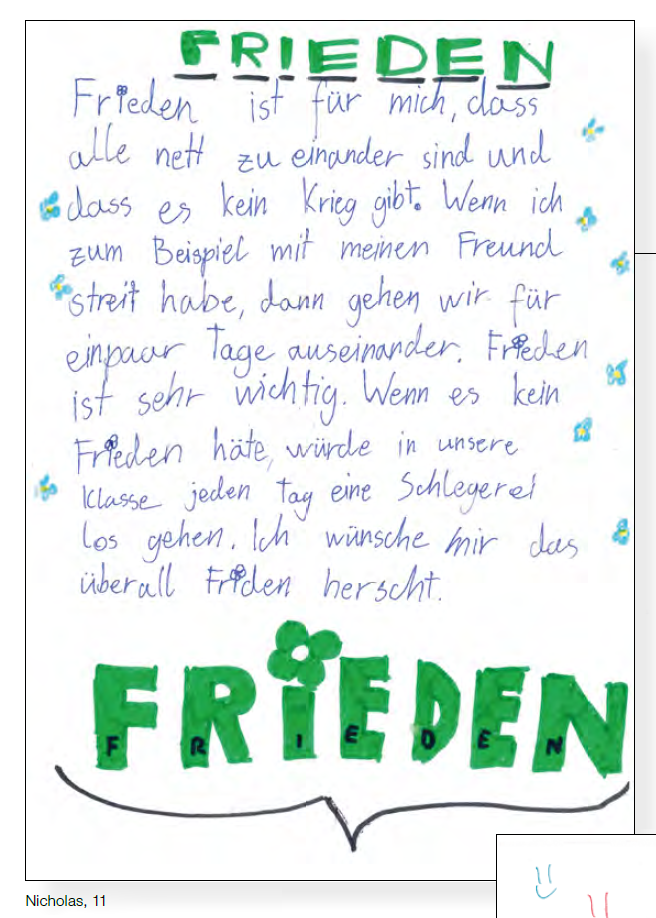 FRIEDEN
Frieden ist für mich, dass
alle nett zu einander sind und
dass es kein Krieg gibt. Wenn ich
zum Beispiel mit meinen Freund
streit habe, dann gehen wir für
einpaar Tage auseinander. Frieden
ist sehr wichtig. Wenn es kein
Frieden häte, würde in unsere
Klasse jeden tag eine Schlegerei
los gehen. Ich wünsche mir das
überall Friden herscht.
FRIEDEN
F R I E D E N
Nicholas, 11